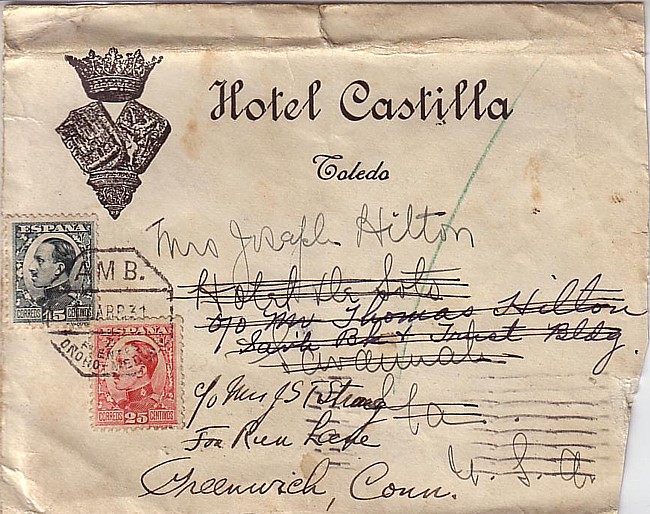 Hotel Castilla
Toledo
Mrs Joseph Hilton
Hotel De Soto
c/o Mr Thomas Hilton
Savh Bk & Trust Bldg.
Savannah
Ga
c/o Mrs J S Strong
Fox Run Lane
Greenwich, Conn.
U. S. A.
ESPAÑA
15 CENTIMOS
CORREOS
AMB.
ABR 31
ESPAÑA
CORREOS 25 CENTIMOS